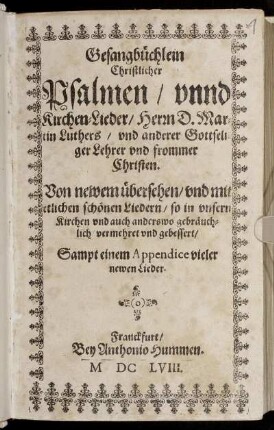 Gesangbüchlein
Christlicher
Psalmen / vnnd
Kirchen-Lieder / Herrn D. Mar-
tin Luthers / vnd anderer Gottseli-
ger Lehrer vnd frommer
Christen.
Von newem übersehen / vnd mit
etlichen schönen Liedern / so in vnsern
Kirchen vnd auch anderswo gebräuch-
lich vermehret vnd gebessert /
Sampt einem Appendice vieler
newen Lieder.
Franckfurt /
Bey Anthonio Hummen.
M DC LVIII.